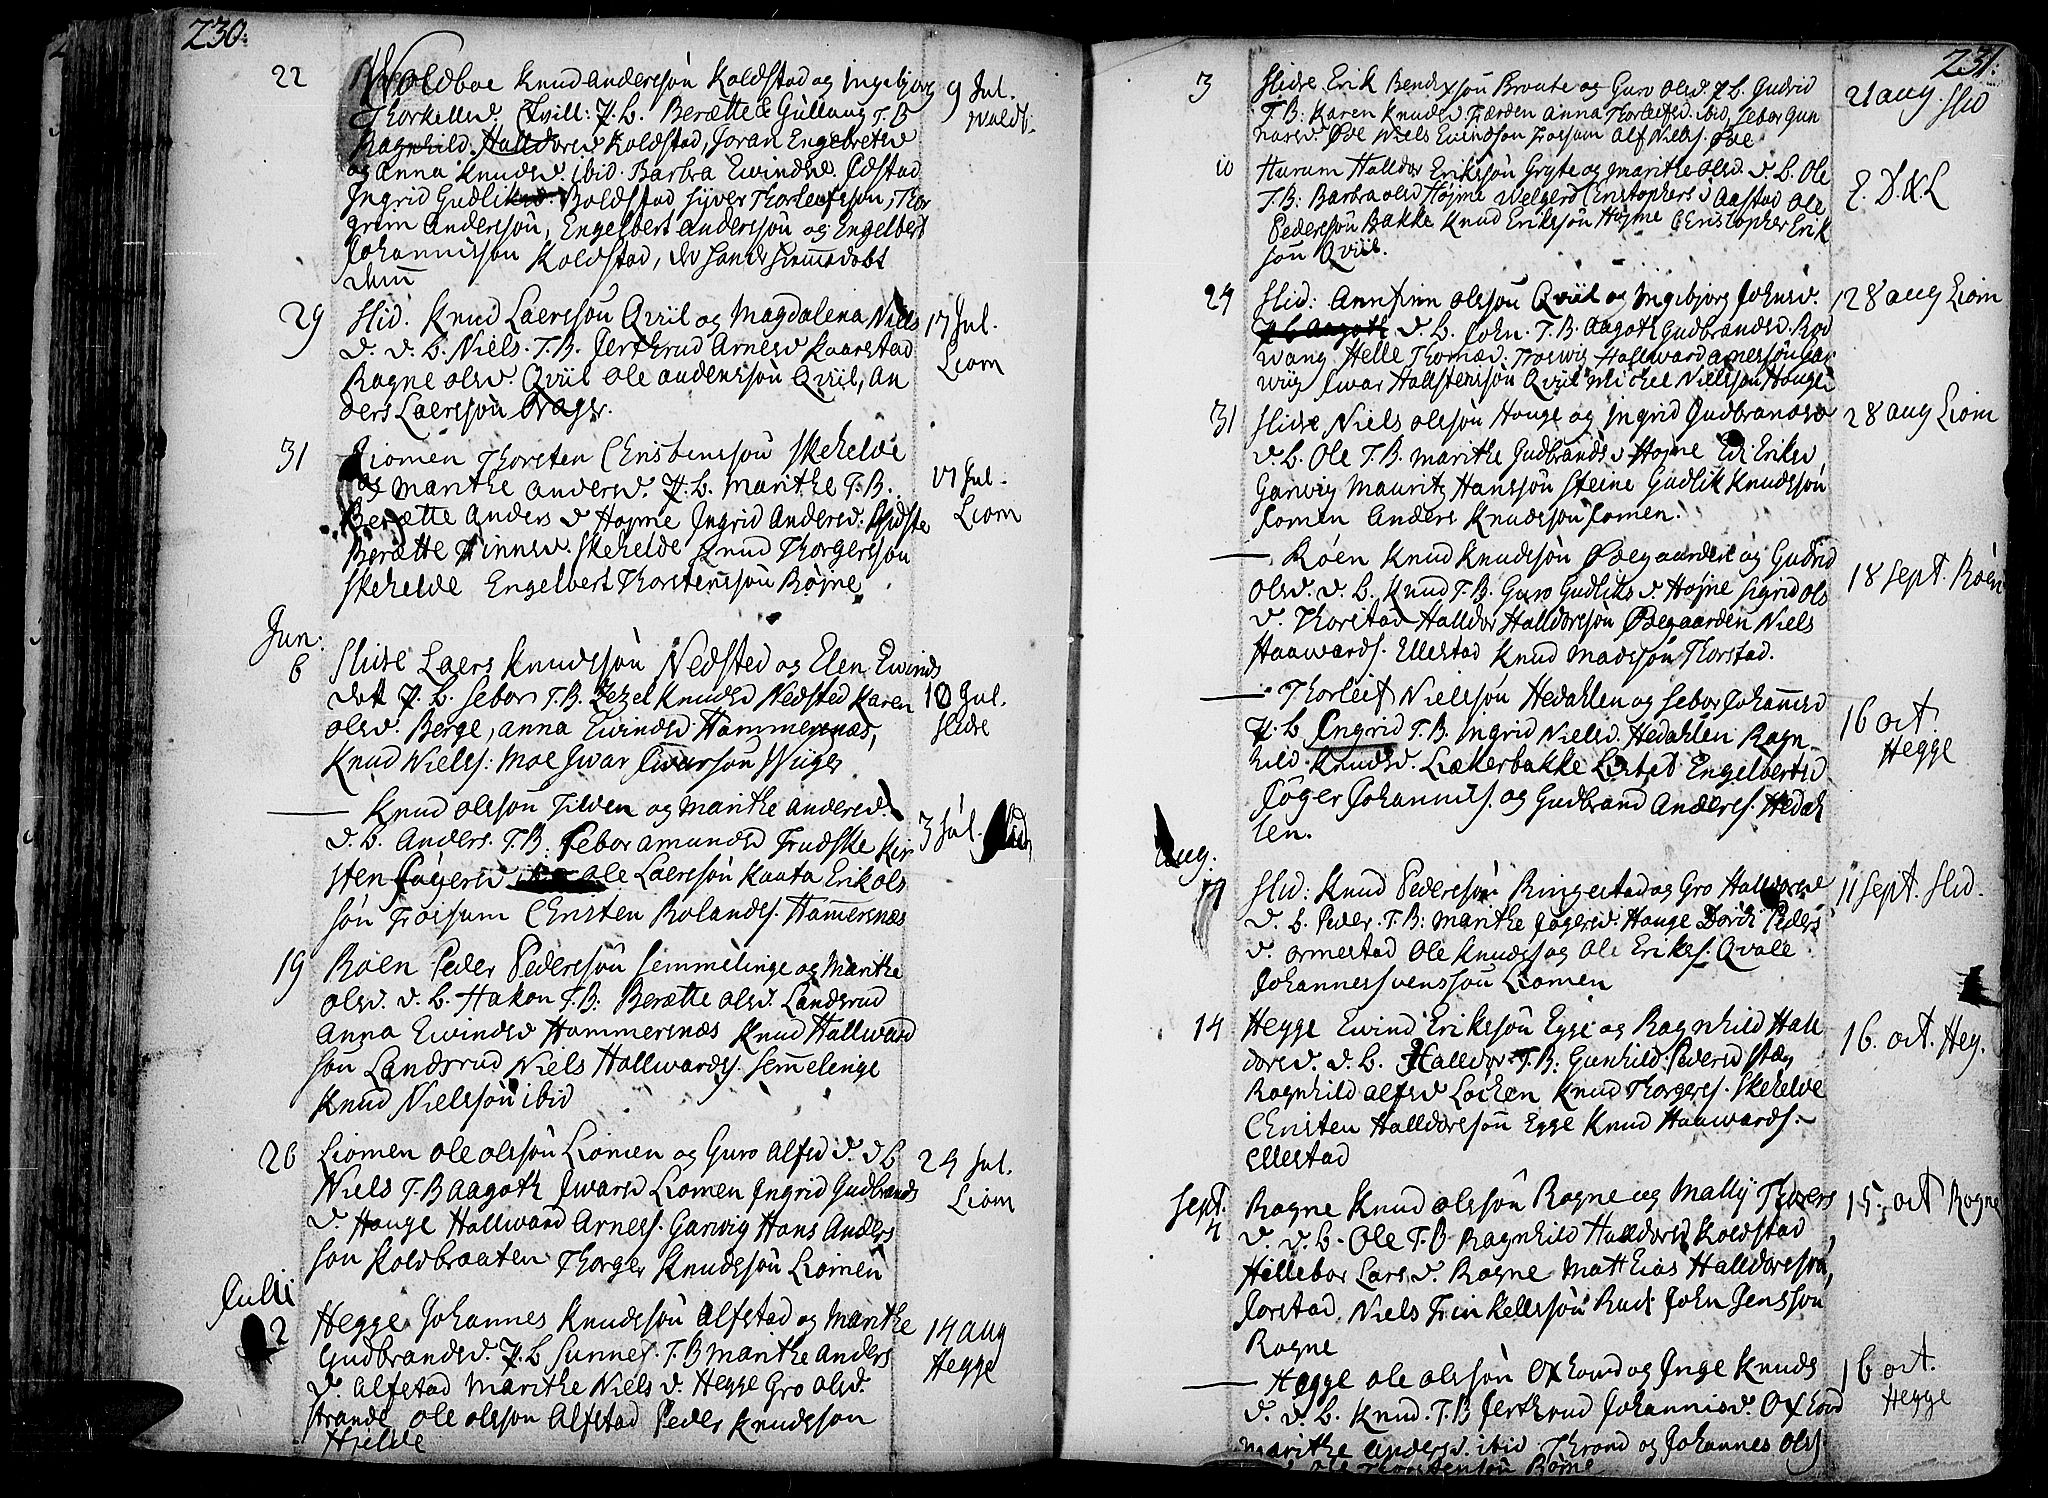 230.
22
Woldboe Knud Anderssøn Koldstad og Ingebjorg
Thorkelsd. Tvill: P. L. Berætte & Gullaug T. B.
Ragnhild Halldorsd Koldstad, Joran Engebretsd
og Anna Knudsd. ibid. Barbra Ewindsd.
Ingrid Gudliksd. Koldstad Syver Thorleufsson, Thor
grim Anderssøn, Engelbert Anderssøn og Engelbert
Johannissøn Koldstad,
9 Jul.
Woldb.
29
Slid. Knud Laerssøn Qviil og Magdalena Niels
d. d. L. Niels. T. B. Jerthrud Arnesd Kaarstad
Ragne olsd. Qviil ole audenssøn Qviil, An
ders Laerssøn
17 Jul.
Liom
31
Liomen Thorsten Christenssøn Skehelde
og Marithe Andersd. P. L. Marithe T. B.
Berætte Anders d Højme Ingrid Andersd:
Berætte Finnsd. Skehelde Knud Thorgerssøn
Skehelde Engelbert Thorstenssøn Røjne
17 Jul.
Liom
Jun:
6
Slidre Laers Knudssøn Nedsted og Elen Ewinds
dot P. L. Sebor T. B. Zezel Knudsd Nedsted Karen
olsd. Berge, Anna Ewindsd. Hammersnæs,
Knud Niels: Moe Iwar Iwarsøn Wiiger
10 Jul.
Slidre
— Knud olssøn Filden og Marithe Andersd.
d. L. Anders. T. B. Sebor Amundsd Frudske Kir
sten Jøgersd ole Laerssøn Kaata Erik ols
søn Fraisum Christen Rolands. Hamersnæs
3 Jul.
19
Roen Peder Pederssøn Semmelinge og Marithe
olsd. d. L. Hakon T. B: Berætte olsd. Landsrud
Anna Ewindsd Hammersnæs Knud Hallward
søn Landsrud Niels Hallwards. Semelinge
Knud Nielssøn ibid
26
Liomen ole olssøn Liomen og Guro Alfsd d. d L
Niels T. B Aagoth Iwarsd Liomen Ingrid Gudbrands
d. Hauge Hallward Arnes. Garwig Hans Anders
søn Koldbraaten Thorger Knudssøn Liomen
24 Jul.
Liom
Julii
2
Hegge Johannes Knudssøn Alfstad og Marithe
Gudbrandsd. P. L Sunnef. T. B Marithe Anders
d. Alfstad Marithe Niels d. Hegge Gro olsd.
Strande ole olssøn Alfstad Peder Knudssøn
Hielde
14 aug
Hegge
231.
3
Slidre Erik Bendixsøn Broute og Guro olsd P. L. Gudrid
T. B: Karen Knudsd Færden Anna Thorleifsd ibid, Sebor Gun
narsd. Øde Niels Ewindsøn Fossum Alf Niels. Øde
21 aug.
Slid
10
Hurum Halldor Erikssøn Gryte og Marithe olsd. d. L. Ole
T. B: Barbra olsd Højme Welgerd Christophers d Aastad ole
Pederssøn Bakke Knud Erikssøn Højme Christopher Erik
søn Qviil.
E. D. & L
24
Slid: Annfinn olssøn Qviil og Ingebjorg Johnsd.
d. L. John. T. B. Aagoth Gudbrandsd. Rod
wang Helle Thomæd: Hallward Arnessøn Gar
wiig Iwar Hallstenssøn Qviil Michel Nielssøn Hauge
28 aug Liom
31
Slidre Niels olssøn Hauge og Ingrid Gudbrandsd
d. L. Ole T. B. Marithe Gudbrands d Højme Edi Eriksd
Garwig Mauritz Hanssøn Steine Gudlik Knudssøn
Lomen Anders Knudssøn Lomen.
28 aug Liom
— Røen Knud Knudssøn Ødegaarden og Gudrid
olsd. d. L. Knud T. B. Guro Gudliks d. Højne Sigrid ols
d. Thorstad Halldor Halldorssøn Ødegaarden Niels
Haawards. Ellestad Knud Madssøn Thorstad.
18 Sept. Røen
— Thorleif Nielssøn Hedahlen og Sebor Johannesd
P. L. Ingrid T. B. Ingrid Nielsd. Hedahlen Ragn
hild Knudsd. Liækerbakke Lisbet Engelbertsd
Jøger Johannis. og Gudbrand Anders. Hedah
len.
16 oct.
Hegge
Aug.
Slid: Knud Pederssøn Ringestad og Gro Halldorsd
d. L. Peder. T. B: Marithe Jøgersd. Hauge Dordi Peders
d. Ormestad Ole Knuds og Ole Eriks. Qvale
Johannes Svenssøn Liomen
11 Sept. Slid.
14
Hegge Ewind Erikssøn Egge og Ragnhild Hall
dorsd. d. L. Halldor T. B: Gunhild Pedersd
Ragnhild Alfsd Løchen Knud Thorgers. Skehelde
Christen Halldorssøn Egge Knud Haawards.
Ellestad
16. oct. Heg.
Sept.
4
Rogne Knud olssøn Rogne og Mally Thores
d. d. L. Ole T. B Ragnhild Halldorsd Koldstad,
Hillebor Lars d. Rogne Matthias Halldorssøn,
Jorstad Niels Frinkellssøn Rudi John Jenssøn
Rogne
15. oct Rogne
— Hegge ole olssøn Oxhovd og Inge Knuds
d. d. L. Knud. T. B Jerthrud Johannisd. Oxhovd
Marithe Andersd. ibid Thrond og Johannes ols.
16 oct.
Hegge